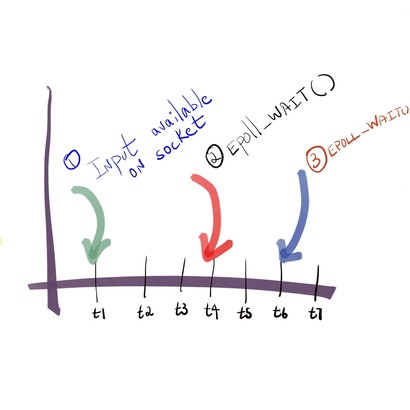 ① Input available
on socket
② EPOLL_WAIT()
③ EPOLL_WAIT()
t1 t2 t3 t4 t5 t6 t7